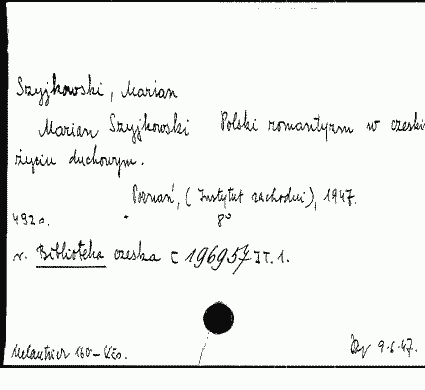 Szyjkowski, Marian
Marian Szyjkowski Polski romantyzm w czeskim
życiu duchowym.
Poznań, (Instytut zachodni), 1947.
492 s. 8°
v. Biblioteka czeska C 196957 T. 1.
Melantrich 160 – Kčs. 9.6.47.